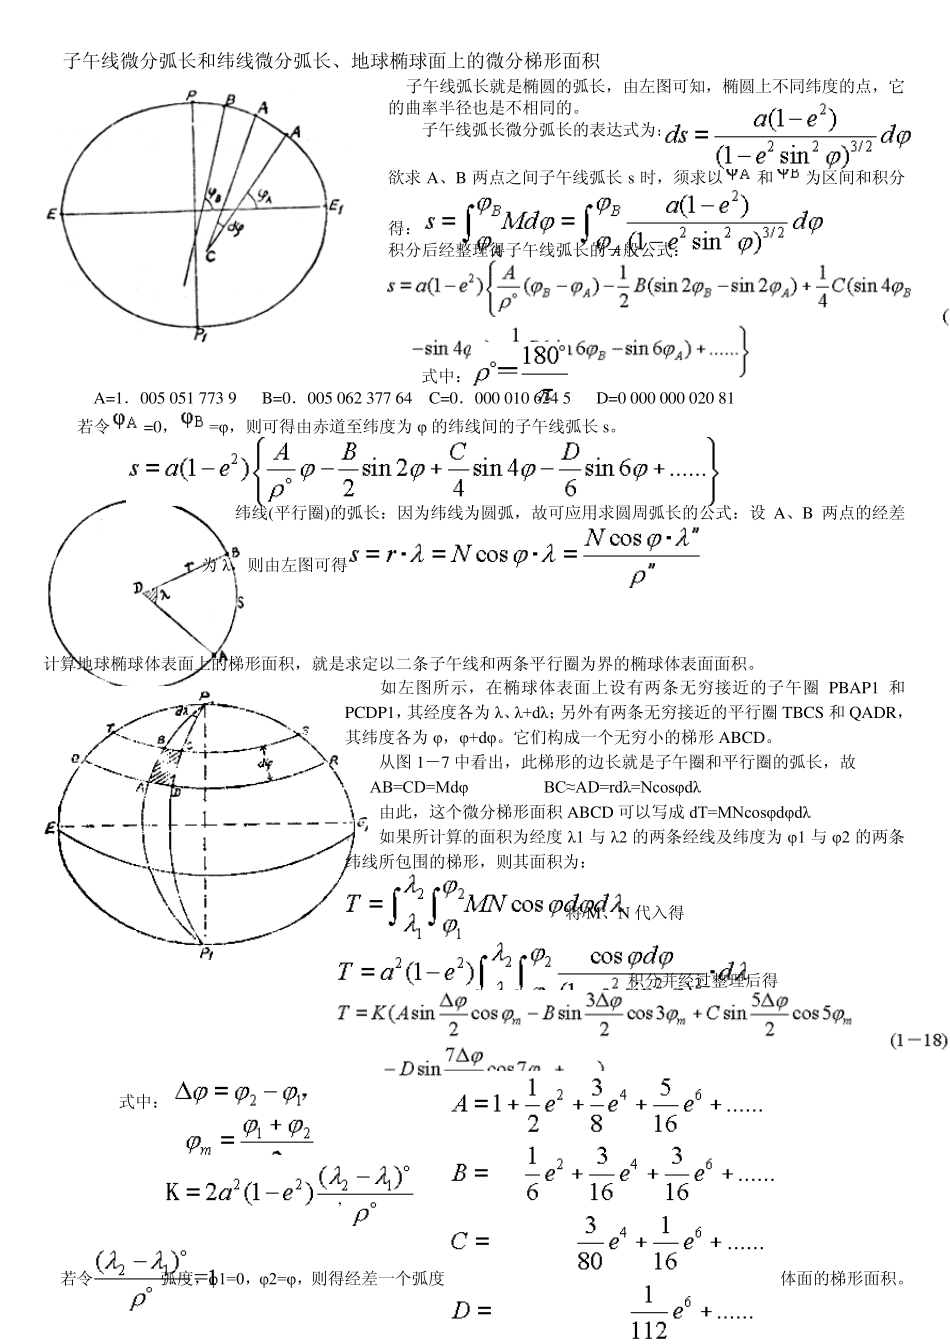 子午线微分弧长和纬线微分弧长、地球椭球面上的微分梯形面积
子午线弧长就是椭圆的弧长，由左图可知，椭圆上不同纬度的点，它
的曲率半径也是不相同的。
子午线弧长微分弧长的表达式为: ds = a(1-e²)/(1-e² sin² φ)^{3/2} dφ
欲求 A、B 两点之间子午线弧长 s 时，须求以 φA 和 φB 为区间和积分
得: s = ∫_{φA}^{φB} Mdφ = ∫_{φA}^{φB} a(1-e²)/(1-e² sin² φ)^{3/2} dφ
积分后经整理得子午线弧长的一般公式:
s = a(1-e²){A/ρ° (φB-φA) - 1/2 B(sin 2φB - sin 2φA) + 1/4 C(sin 4φB
-sin 4φ 6φB - sin 6φA) + ......}
式中: ρ° = 180°/π
A=1．005 051 773 9 B=0．005 062 377 64 C=0．000 010 624 5 D=0 000 000 020 81
若令 φA =0， φB =φ，则可得由赤道至纬度为 φ 的纬线间的子午线弧长 s。
s = a(1-e²){A/ρ° φ - B/2 sin 2φ + C/4 sin 4φ - D/6 sin 6φ + ......}
纬线(平行圈)的弧长：因为纬线为圆弧，故可应用求圆周弧长的公式：设 A、B 两点的经差
为 λ，则由左图可得 s = r·λ = N cos φ·λ = N cos φ·λ″/ρ″
计算地球椭球体表面上的梯形面积，就是求定以二条子午线和两条平行圈为界的椭球体表面面积。
如左图所示，在椭球体表面上设有两条无穷接近的子午圈 PBAP1 和
PCDP1，其经度各为 λ、λ+dλ；另外有两条无穷接近的平行圈 TBCS 和 QADR，
其纬度各为 φ，φ+dφ。它们构成一个无穷小的梯形 ABCD。
从图 1－7 中看出，此梯形的边长就是子午圈和平行圈的弧长，故
AB=CD=Mdφ BC≈AD=rdλ=Ncosφdλ
由此，这个微分梯形面积 ABCD 可以写成 dT=MNcosφdφdλ
如果所计算的面积为经度 λ1 与 λ2 的两条经线及纬度为 φ1 与 φ2 的两条
纬线所包围的梯形，则其面积为：
T = ∫_{λ1}^{λ2} ∫_{φ1}^{φ2} MN cos φdφdλ 将 M、N 代入得
T = a²(1-e²) ∫^{λ2} ∫^{φ2} cos φdφ ·dλ 积分并经过整理后得
T = K(A sin Δφ/2 cos φm - B sin 3Δφ/2 cos 3φm + C sin 5Δφ/2 cos 5φm
- D sin 7Δφ (1－18)
式中： Δφ = φ2 - φ1， A = 1 + 1/2 e² + 3/8 e⁴ + 5/16 e⁶ + ......
φm = φ1 + φ2
B = 1/6 e² + 3/16 e⁴ + 3/16 e⁶ + ......
K = 2a²(1-e²) (λ2 - λ1)°/ρ°
C = 3/80 e⁴ + 1/16 e⁶ + ......
若令 (λ2 - λ1)°/ρ° =1 弧度，φ1=0，φ2=φ，则得经差一个弧度 体面的梯形面积。
D = 1/112 e⁶ + ......